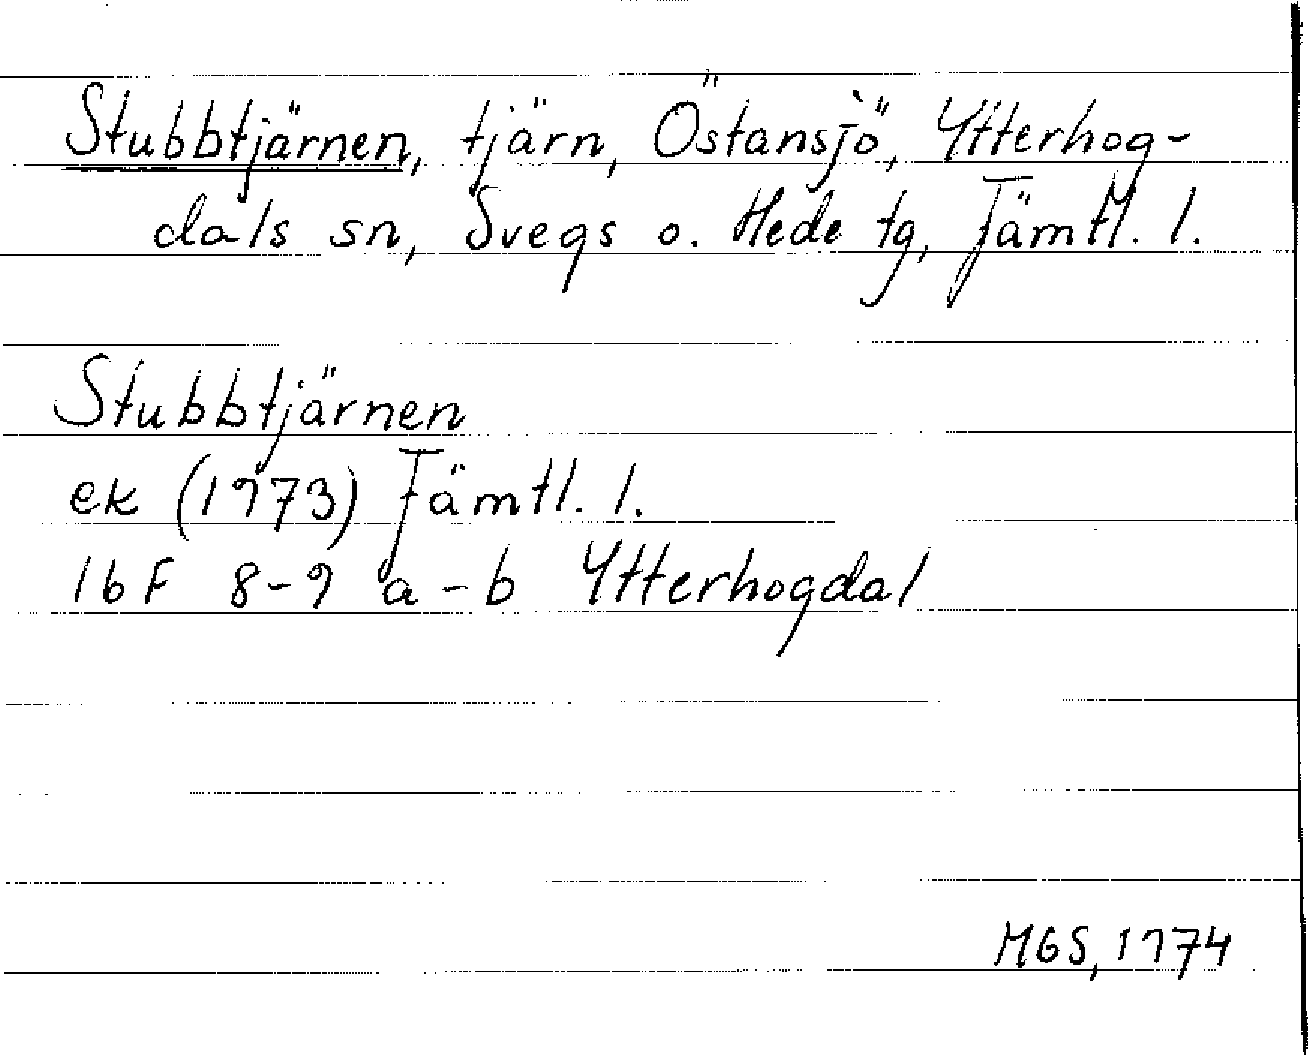 Stubbtjärnen, tjärn, Östansjö, Ytterhog-
dals sn, Svegs o. Hede tg, Jämtl. l.
Stubbtjärnen
ek (1973) Jämtl. l.
16F 8-9 a-b Ytterhogdal
MGS, 1974